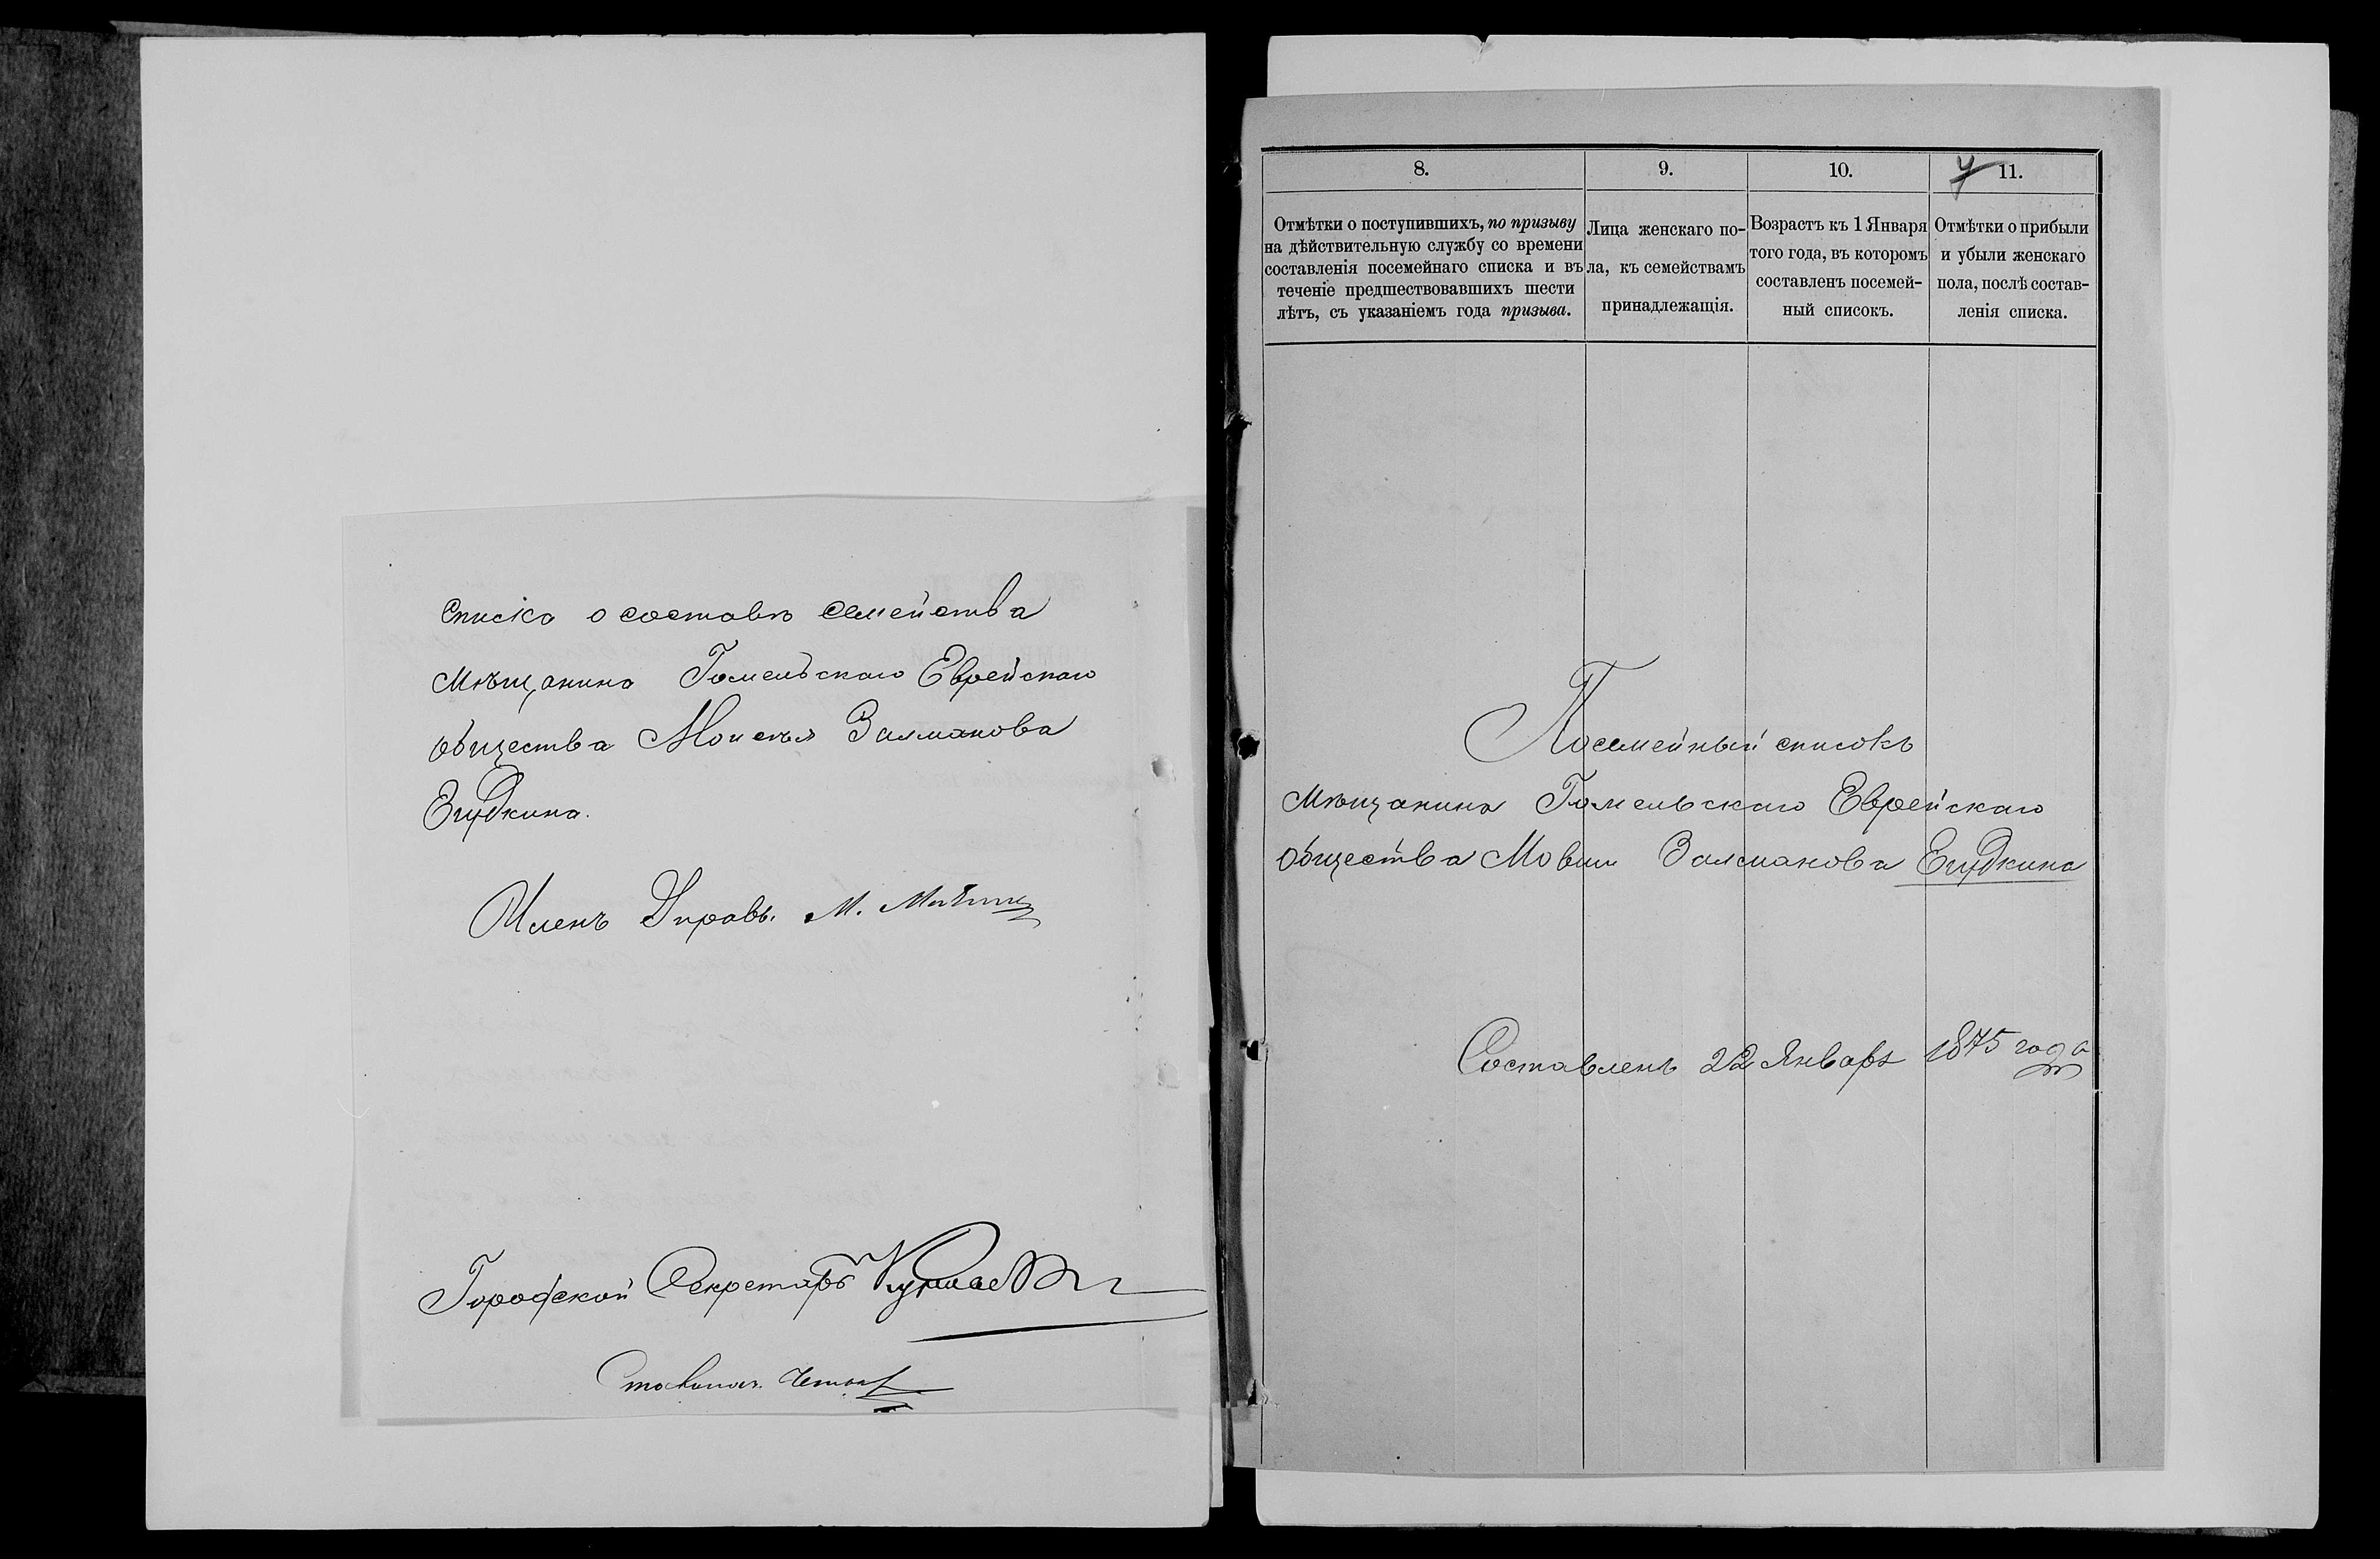 списка о составѣ семейства
мѣщанина Гомельскаго Еврейскаго
общества Моисея Залманова
Егудкина.
Членъ Управы М.
Городской Секретарь
8.
9.
10.
11.
Отмѣтки о поступившихъ, по призыву
на дѣйствительную службу со времени
составленія посемейнаго списка и въ
теченіе предшествовавшихъ шести
лѣтъ, съ указаніемъ года призыва.
Лица женскаго по-
ла, къ семействамъ
принадлежащія.
Возрастъ къ 1 Января
того года, въ которомъ
составленъ посемей-
ный списокъ.
Отмѣтки о прибыли
и убыли женскаго
пола, послѣ состав-
ленія списка.
Посемейный списокъ
мѣщанина Гомельскаго Еврейскаго
общества Мовши Залманова Егудкина
Составленъ 22 Января 1875 года